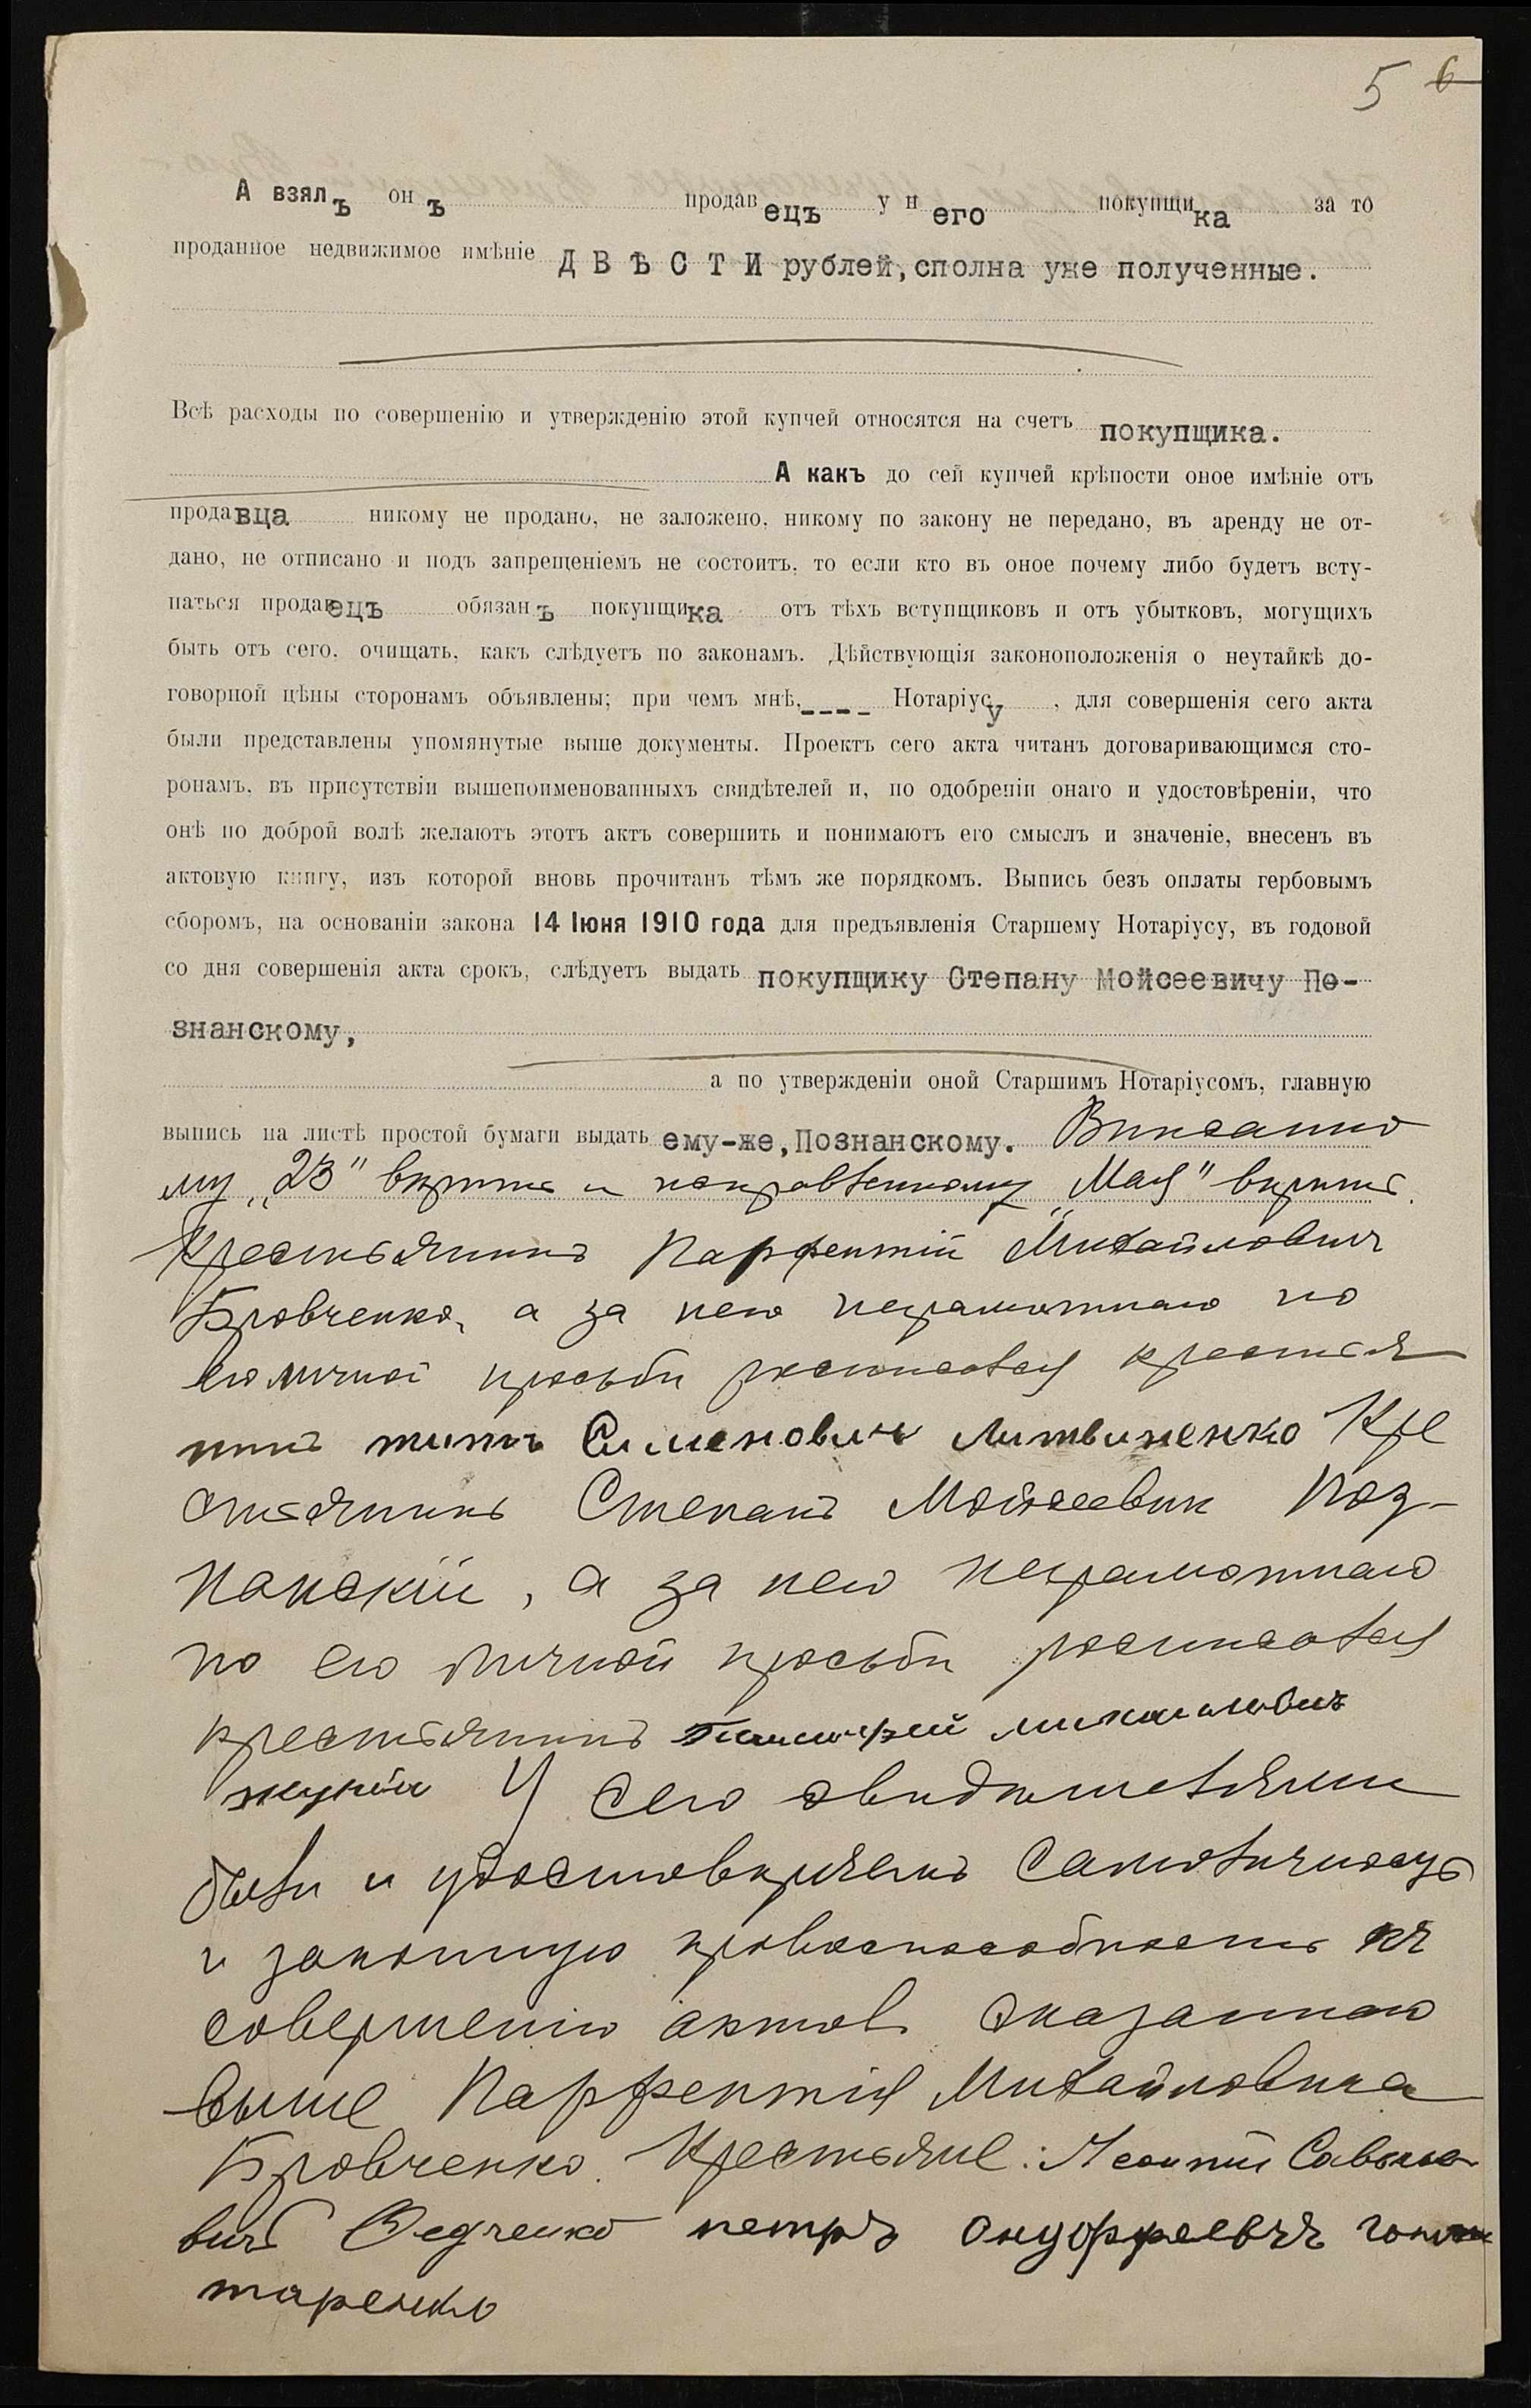 5 6
А взялъ онъ продавецъ у него покупщика за то
проданное недвижимое имѣніе Д В Ѣ С Т И рублей, сполна уже полученные.
Всѣ расходы по совершенію и утвержденію этой купчей относятся на счетъ покупщика.
А какъ до сей купчей крѣпости оное имѣніе отъ
продавца никому не продано, не заложено, никому по закону не передано, въ аренду не от-
дано, не отписано и подъ запрещеніемъ не состоитъ, то если кто въ оное почему либо будетъ всту-
паться продавецъ обязанъ покупщика отъ тѣхъ вступщиковъ и отъ убытковъ, могущихъ
быть отъ сего, очищать, какъ слѣдуетъ по законамъ. Дѣйствующія законоположенія о неутайкѣ до-
говорной цѣны сторонамъ объявлены; при чемъ мнѣ,---- Нотаріусу , для совершенія сего акта
были представлены упомянутые выше документы. Проектъ сего акта читанъ договаривающимся сто-
ронамъ, въ присутствіи вышепоименованныхъ свидѣтелей и, по одобреніи онаго и удостовѣреніи, что
онѣ по доброй волѣ желаютъ этотъ актъ совершить и понимаютъ его смыслъ и значеніе, внесенъ въ
актовую книгу, изъ которой вновь прочитанъ тѣмъ же порядкомъ. Выпись безъ оплаты гербовымъ
сборомъ, на основаніи закона 14 Іюня 1910 года для предъявленія Старшему Нотаріусу, въ годовой
со дня совершенія акта срокъ, слѣдуетъ выдать покупщику Степану Мойсеевичу По-
знанскому,
а по утвержденіи оной Старшимъ Нотаріусомъ, главную
выпись на листѣ простой бумаги выдать ему-же, Познанскому. Вписанно
му „23" вѣрить и поправленному „Мая" вѣрить.
Крестьянинъ Парфентій Михайловичъ
Бровченко, а за него неграмотнаго по
его личной просьбѣ росписался крестья
нинъ титъ Сименовичъ Литвиненко Кре
стьянинъ Степанъ Мойсеевич Поз-
нанскій, а за него неграмотнаго
по его личной просьбѣ росписался
крестьянинъ михайловичъ
У сего свидѣтелями
были и удостовѣряемъ самоличность
и законную правоспособность къ
совершенію актовъ сказаннаго
выше Парфентія Михайловича
Бровченко. Крестьяне: Леонтій
вичъ Федченко петръ онуфріевичъ
таренко